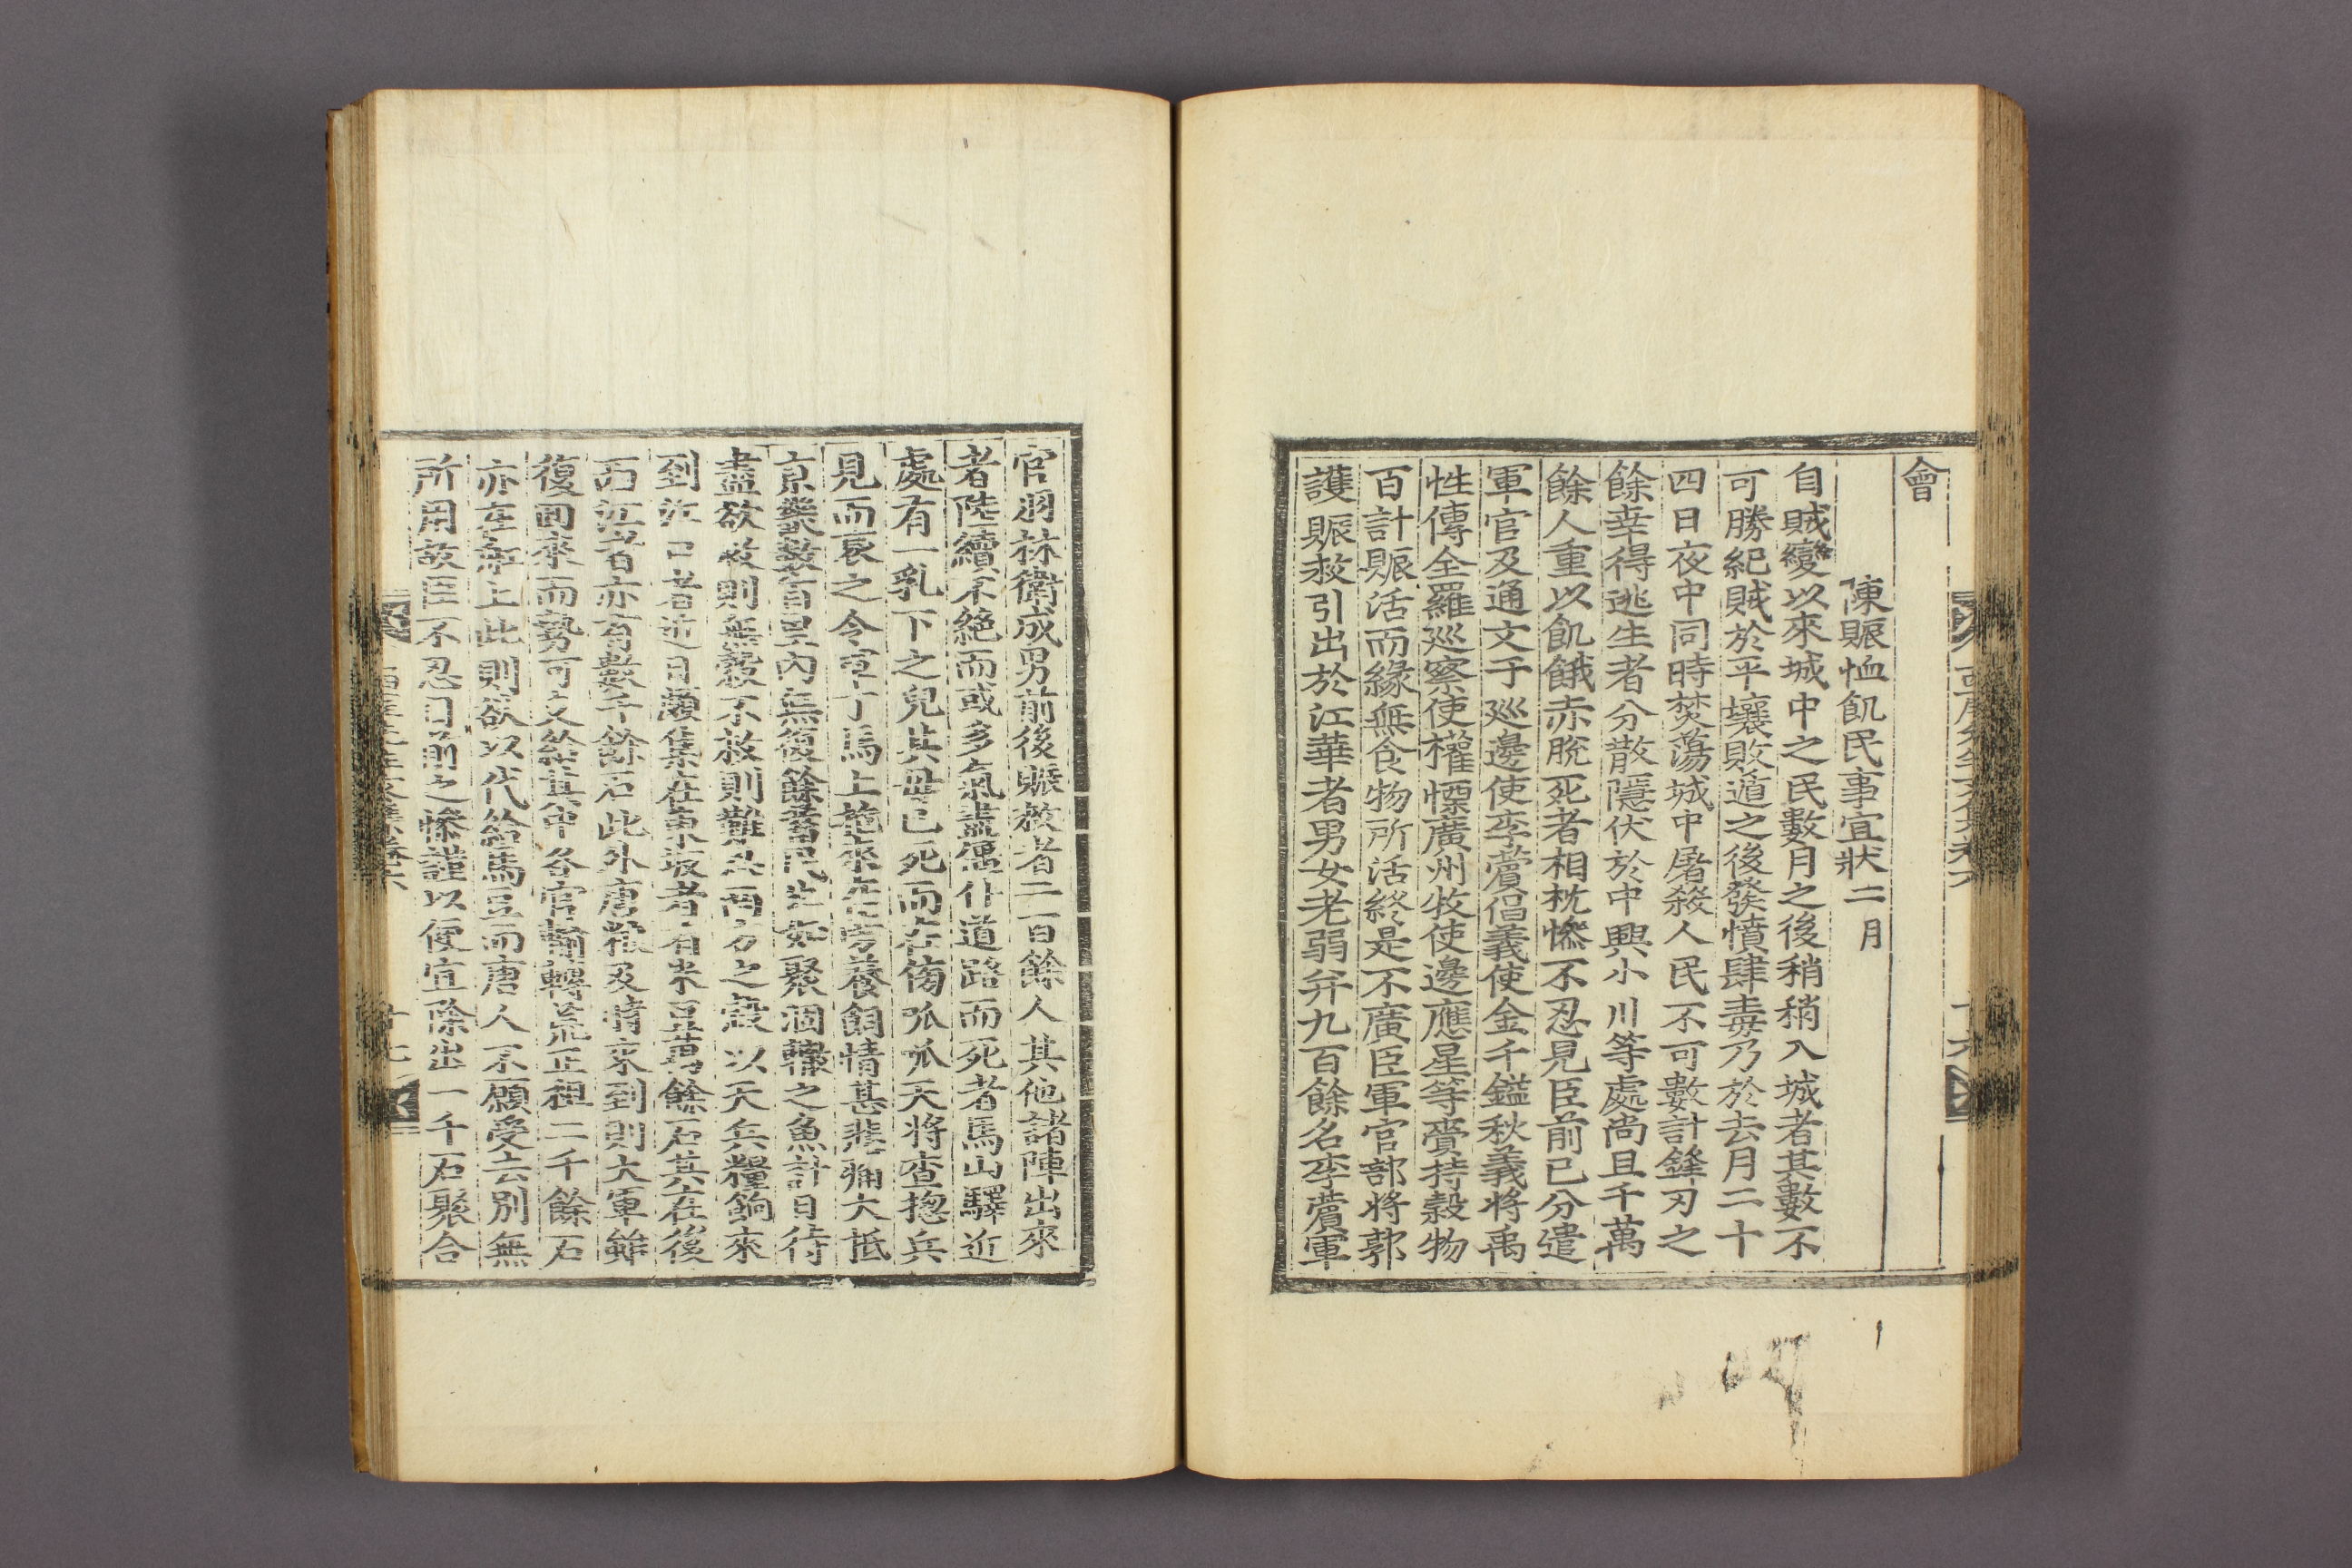 會
陳賑恤飢民事宜狀 二月
自賊變以來城中之民數月之後稍稍入城者其數不
可勝紀賊於平壤敗遁之後發憤肆毒乃於去月二十
四日夜中同時焚蕩城中屠殺人民不可數計鋒刃之
餘幸得逃生者分散隱伏於中興小川等處尚且千萬
餘人重以飢餓赤脫死者相枕慘不忍見臣前已分遣
軍官及通文于巡邊使李薲倡義使金千鎰秋義將禹
性傳全羅巡察使權慄廣州牧使邊應星等賷持穀物
百計賑活而緣無食物所活終是不廣臣軍官部將郭
護賑救引出於江華者男女老弱并九百餘名李薲軍
官羽林衛成男前後賑救者二百餘人其他諸陣出來
者陸續不絕而或多氣盡僵仆道路而死者馬山驛近
處有一乳下之兒其母已死而在傍呱呱天將查揔兵
見而哀之令軍丁馬上抱來在旁養飼情甚悲痛大抵
京畿數百里內無復餘蓄民生如聚涸轍之魚計日待
盡欲救則無穀不救則難共兩方之穀以天兵糧餉來
到江口者近日顚集在東坡者有米豆萬餘石其在後
西江者亦有數千餘石此外唐粮及時來到則大軍雖
復回來而勢可支給其中各官輸轉荒正租二千餘石
亦在船上此則欲以代給馬豆而唐人不願受去別無
所用故臣不忍目前之慘謹以便宜除出一千石聚合